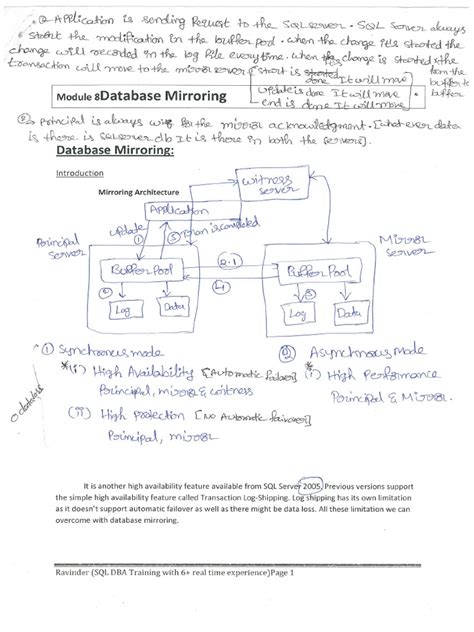 Application is sending Request to the SQL server. SQL Server always
start the modification in the buffer pool. when the change its started the
change will recorded in the log file everytime. when the change is started the
transaction will move to the mirror server start is started It will move from the buffer to buffer
Module 8Database Mirroring
update is done It will move
end is done It will move
② principal is always wait for the mirror acknowledgment. [what ever data
Is there is SQL server db It is there in both the servers].
Database Mirroring:
Introduction
Mirroring Architecture
witness server
Application
update ①
⑤ tran is completed
Principal server
Mirror server
Buffer Pool
2.1
Buffer Pool
4
②
③
Log
Data
Log
Data
① Synchronous mode
② Asynchronous Mode
*(i) High Availability [Automatic failover]
*(i) High Performance
Principal, mirror & witness
Principal & Mirror.
(ii) High Protection [NO Automatic failover]
Principal, mirror
It is another high availability feature available from SQL Server 2005. Previous versions support
the simple high availability feature called Transaction Log-Shipping. Log shipping has its own limitation
as it doesn't support automatic failover as well as there might be data loss. All these limitation we can
overcome with database mirroring.
Ravinder (SQL DBA Training with 6+ real time experience)Page 1